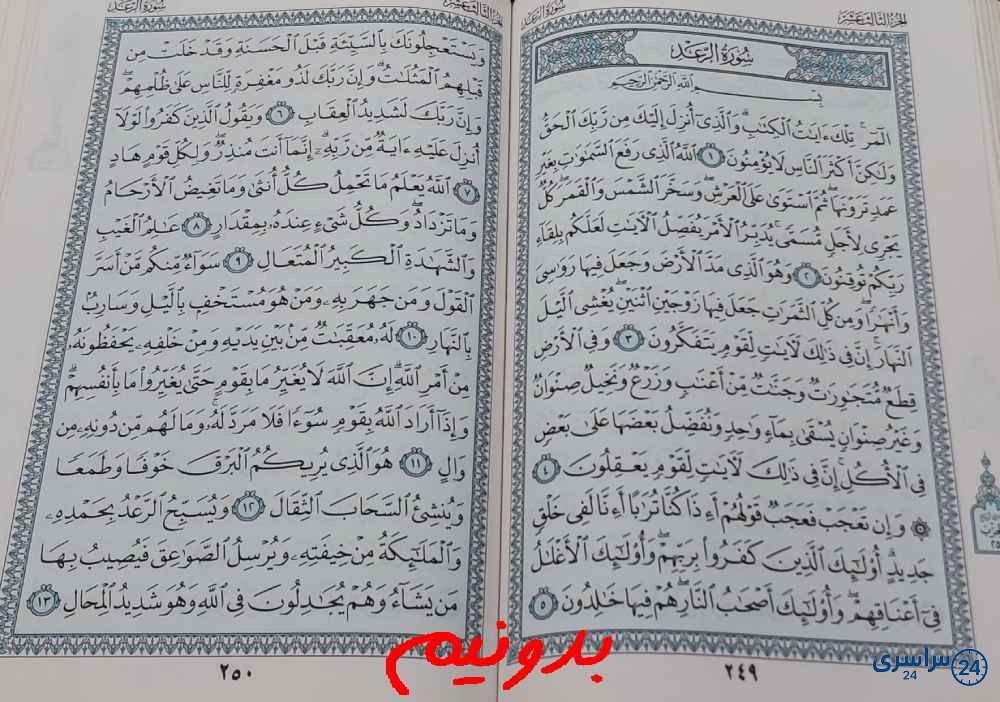 الجزء الثالث عشر
سورة الرعد
سُورَةُ الرَّعْدِ
بِسْمِ اللَّهِ الرَّحْمَٰنِ الرَّحِيمِ
الٓمٓر ۚ تِلْكَ ءَايَٰتُ الْكِتَٰبِ ۗ وَالَّذِىٓ أُنزِلَ إِلَيْكَ مِن رَّبِّكَ الْحَقُّ
وَلَٰكِنَّ أَكْثَرَ النَّاسِ لَا يُؤْمِنُونَ ١ اللَّهُ الَّذِى رَفَعَ السَّمَٰوَٰتِ بِغَيْرِ
عَمَدٍ تَرَوْنَهَا ۖ ثُمَّ اسْتَوَىٰ عَلَى الْعَرْشِ ۖ وَسَخَّرَ الشَّمْسَ وَالْقَمَرَ ۖ كُلٌّ
يَجْرِى لِأَجَلٍ مُّسَمًّى ۚ يُدَبِّرُ الْأَمْرَ يُفَصِّلُ الْءَايَٰتِ لَعَلَّكُم بِلِقَآءِ
رَبِّكُمْ تُوقِنُونَ ٢ وَهُوَ الَّذِى مَدَّ الْأَرْضَ وَجَعَلَ فِيهَا رَوَٰسِىَ
وَأَنْهَٰرًا ۖ وَمِن كُلِّ الثَّمَرَٰتِ جَعَلَ فِيهَا زَوْجَيْنِ اثْنَيْنِ ۖ يُغْشِى الَّيْلَ
النَّهَارَ ۚ إِنَّ فِى ذَٰلِكَ لَءَايَٰتٍ لِّقَوْمٍ يَتَفَكَّرُونَ ٣ وَفِى الْأَرْضِ
قِطَعٌ مُّتَجَٰوِرَٰتٌ وَجَنَّٰتٌ مِّنْ أَعْنَٰبٍ وَزَرْعٌ وَنَخِيلٌ صِنْوَانٌ
وَغَيْرُ صِنْوَانٍ يُسْقَىٰ بِمَآءٍ وَٰحِدٍ وَنُفَضِّلُ بَعْضَهَا عَلَىٰ بَعْضٍ
فِى الْأُكُلِ ۚ إِنَّ فِى ذَٰلِكَ لَءَايَٰتٍ لِّقَوْمٍ يَعْقِلُونَ ٤
۞ وَإِن تَعْجَبْ فَعَجَبٌ قَوْلُهُمْ أَءِذَا كُنَّا تُرَٰبًا أَءِنَّا لَفِى خَلْقٍ
جَدِيدٍ ۗ أُو۟لَٰٓئِكَ الَّذِينَ كَفَرُوا۟ بِرَبِّهِمْ ۖ وَأُو۟لَٰٓئِكَ الْأَغْلَٰلُ
فِىٓ أَعْنَاقِهِمْ ۖ وَأُو۟لَٰٓئِكَ أَصْحَٰبُ النَّارِ ۖ هُمْ فِيهَا خَٰلِدُونَ ٥
٢٤٩
الجزء الثالث عشر
سورة الرعد
وَيَسْتَعْجِلُونَكَ بِالسَّيِّئَةِ قَبْلَ الْحَسَنَةِ وَقَدْ خَلَتْ مِن
قَبْلِهِمُ الْمَثُلَٰتُ ۗ وَإِنَّ رَبَّكَ لَذُو مَغْفِرَةٍ لِّلنَّاسِ عَلَىٰ ظُلْمِهِمْ ۖ
وَإِنَّ رَبَّكَ لَشَدِيدُ الْعِقَابِ ٦ وَيَقُولُ الَّذِينَ كَفَرُوا۟ لَوْلَآ
أُنزِلَ عَلَيْهِ ءَايَةٌ مِّن رَّبِّهِۦٓ ۗ إِنَّمَآ أَنتَ مُنذِرٌ ۖ وَلِكُلِّ قَوْمٍ هَادٍ
٧ اللَّهُ يَعْلَمُ مَا تَحْمِلُ كُلُّ أُنثَىٰ وَمَا تَغِيضُ الْأَرْحَامُ
وَمَا تَزْدَادُ ۖ وَكُلُّ شَىْءٍ عِندَهُۥ بِمِقْدَارٍ ٨ عَٰلِمُ الْغَيْبِ
وَالشَّهَٰدَةِ الْكَبِيرُ الْمُتَعَالِ ٩ سَوَآءٌ مِّنكُم مَّنْ أَسَرَّ
الْقَوْلَ وَمَن جَهَرَ بِهِۦ وَمَنْ هُوَ مُسْتَخْفٍۭ بِالَّيْلِ وَسَارِبٌۢ
بِالنَّهَارِ ١٠ لَهُۥ مُعَقِّبَٰتٌ مِّنۢ بَيْنِ يَدَيْهِ وَمِنْ خَلْفِهِۦ يَحْفَظُونَهُۥ
مِنْ أَمْرِ اللَّهِ ۗ إِنَّ اللَّهَ لَا يُغَيِّرُ مَا بِقَوْمٍ حَتَّىٰ يُغَيِّرُوا۟ مَا بِأَنفُسِهِمْ ۗ
وَإِذَآ أَرَادَ اللَّهُ بِقَوْمٍ سُوٓءًا فَلَا مَرَدَّ لَهُۥ ۚ وَمَا لَهُم مِّن دُونِهِۦ مِن
وَالٍ ١١ هُوَ الَّذِى يُرِيكُمُ الْبَرْقَ خَوْفًا وَطَمَعًا
وَيُنشِئُ السَّحَابَ الثِّقَالَ ١٢ وَيُسَبِّحُ الرَّعْدُ بِحَمْدِهِۦ
وَالْمَلَٰٓئِكَةُ مِنْ خِيفَتِهِۦ وَيُرْسِلُ الصَّوَٰعِقَ فَيُصِيبُ بِهَا
مَن يَشَآءُ وَهُمْ يُجَٰدِلُونَ فِى اللَّهِ وَهُوَ شَدِيدُ الْمِحَالِ ١٣
٢٥٠
بدونیم
سراسری 24
24